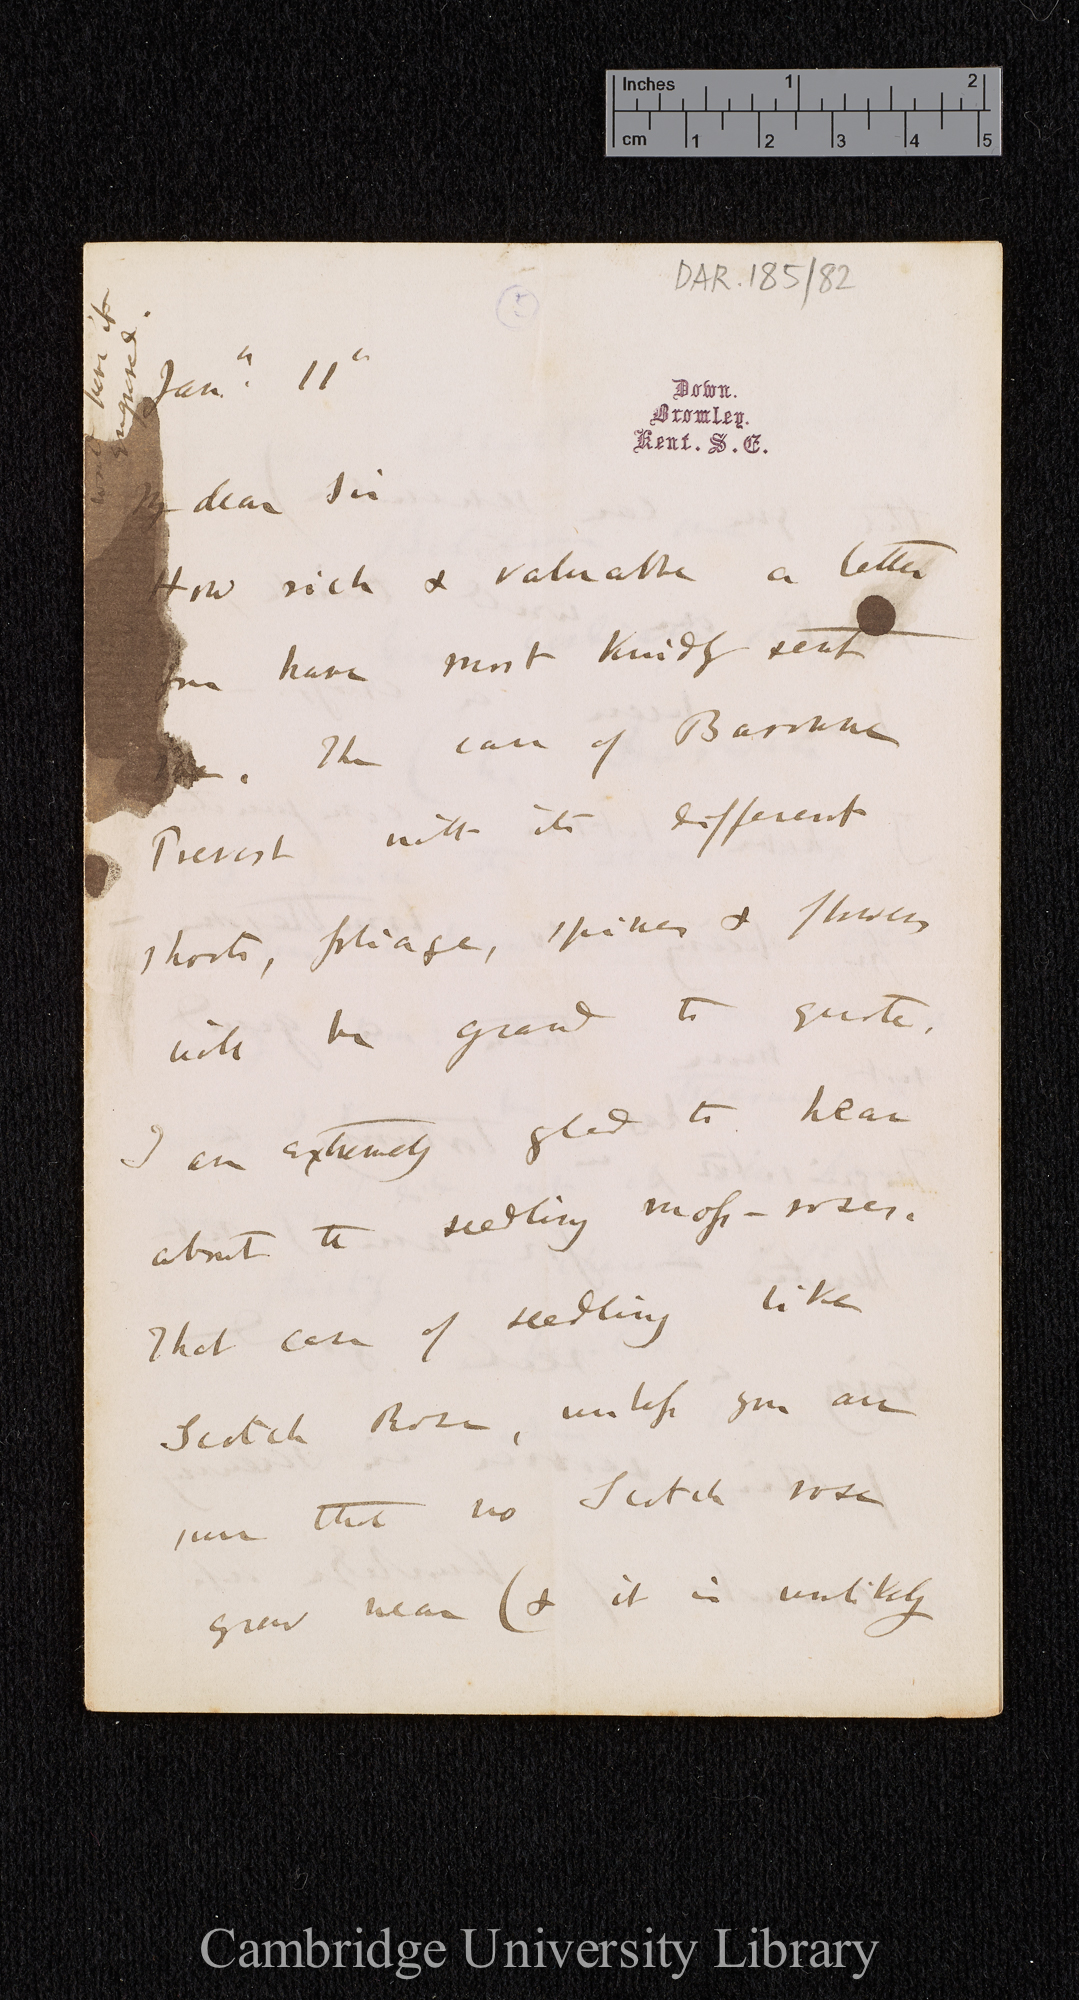 Inches 1 2
cm 1 2 3 4 5
DAR.185/82
have it
engraved.
Jan.y 11th
Down.
Bromley.
Kent. S.E.
My dear Sir
How rich & valuable a letter
you have most kindly sent
me. The case of Baronne
Prevost with its different
shoots, foliage, spines & flowers
will be grand to quote.
I am extremely glad to hear
about the seedling moss-roses.
That case of seedling like
Scotch Rose, unless you are
sure that no Scotch rose
grew near (& it is unlikely
Cambridge University Library